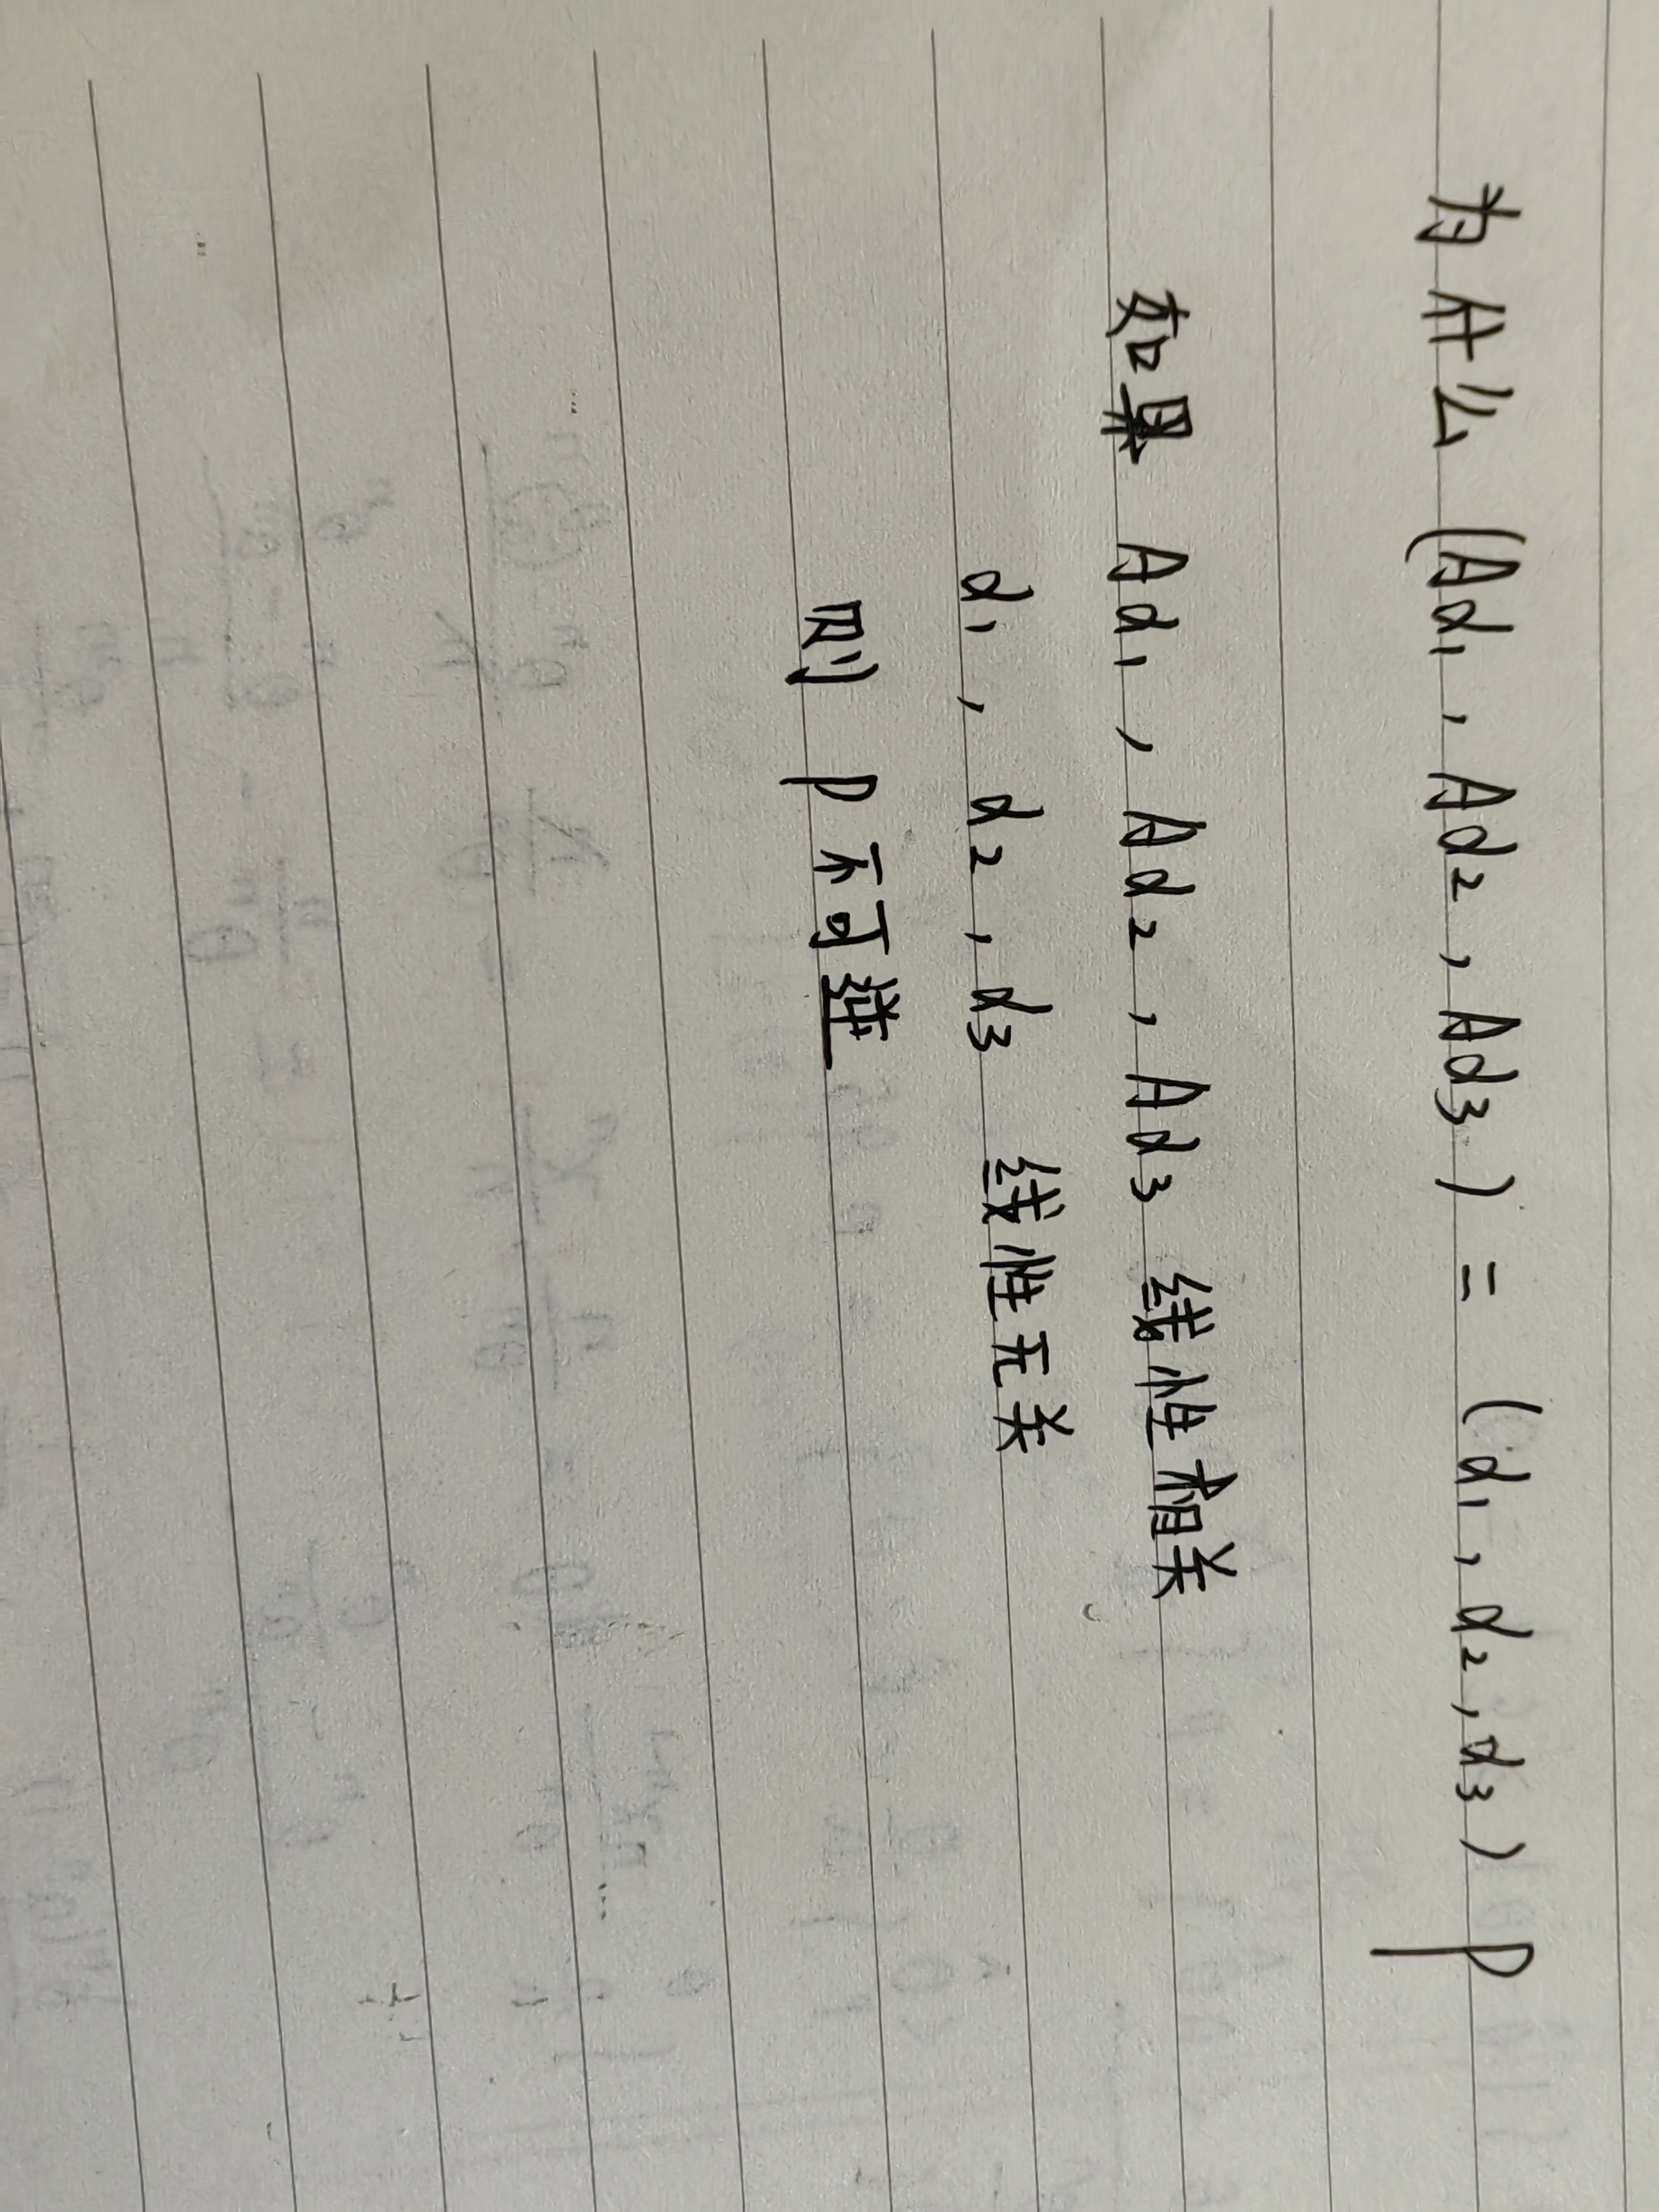 为什么 (Aα1, Aα2, Aα3) = (α1, α2, α3) P
如果 Aα1, Aα2, Aα3 线性相关
α1, α2, α3 线性无关
则 P 不可逆